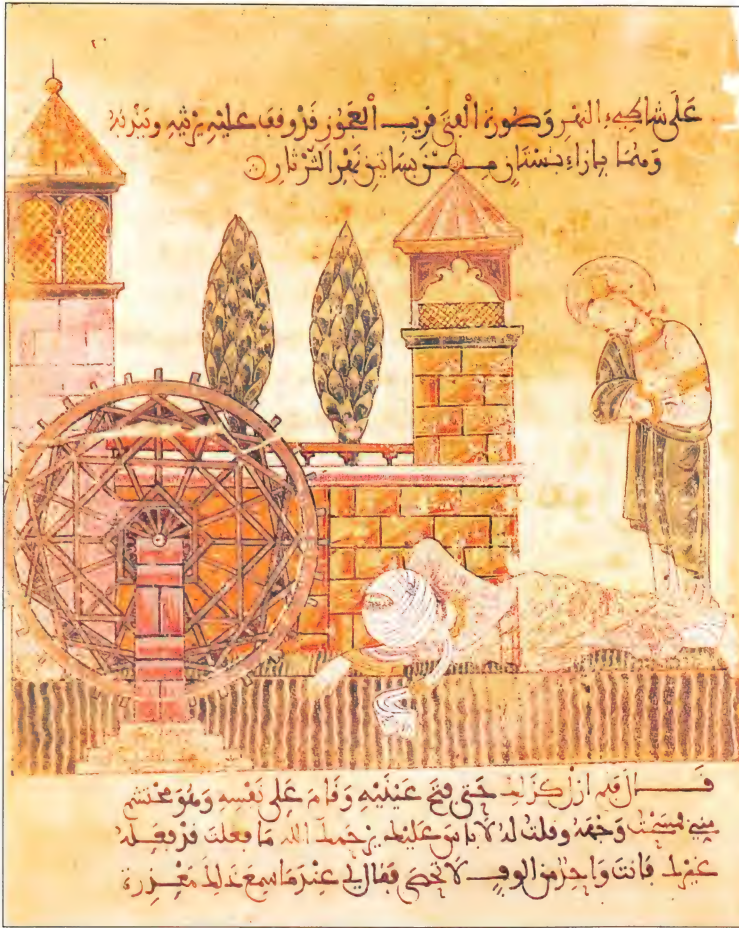 عَلَى شاطىء النهر وَصُورَة الْفتى قريب الْعَجُوز قَدْ وقف عَلَيْهِ يرثيه ويندبه
وهما بازاء بستان من بساتين نهر الثرثار
قال فلم ازل كذلك حَتى فتح عَيْنَيْه وَقام عَلى نَفْسِه وَهُوَ محتشم
مني فمسحت وَجْهه وقلت له لا باس عَلَيْك يرحمك الله مَا فعلت قد فعله
غيرك فانت وَاحد من الوف لا تحصى فقال لي عندما سمع ذلك معذرة